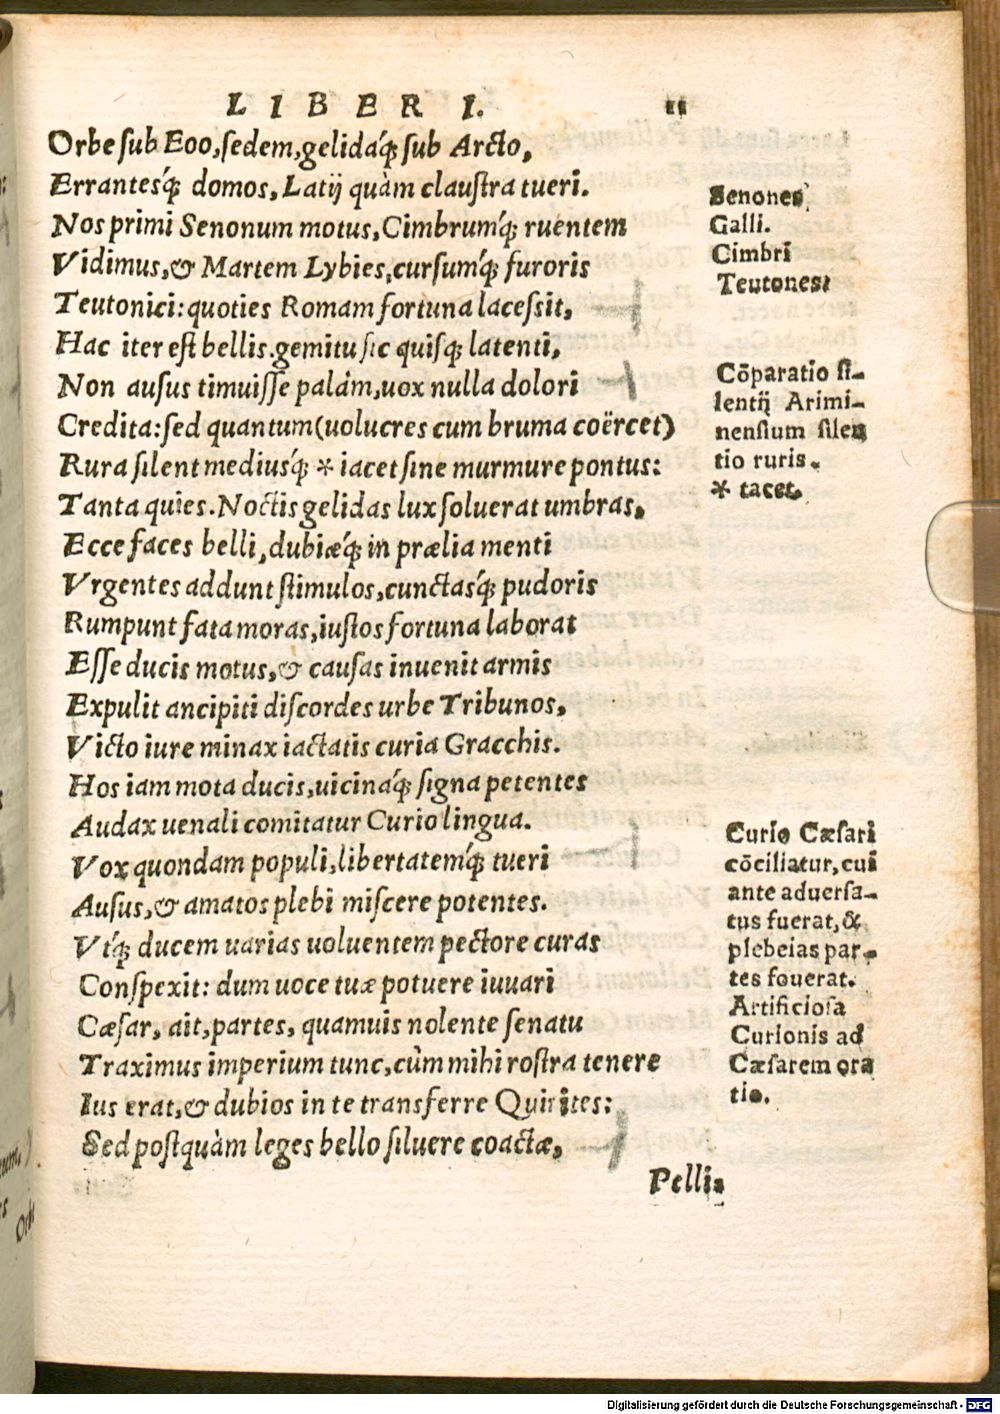 LIBER I. 11
Orbe ſub Eoo, ſedem, gelidáq́; ſub Arcto,
Errantesq́; domos, Latij quàm clauſtra tueri.
Nos primi Senonum motus, Cimbrumq́; ruentem
Vidimus, & Martem Lybies, curſumq́; furoris
Teutonici: quoties Romam fortuna laceſsit,
Hac iter eſt bellis. gemitu ſic quiſq; latenti,
Non auſus timuiſſe palàm, uox nulla dolori
Credita: ſed quantum (uolucres cum bruma coërcet)
Rura ſilent mediusq́; * iacet ſine murmure pontus:
Tanta quies. Noctis gelidas lux ſoluerat umbras,
Ecce faces belli, dubiæq́; in prælia menti
Vrgentes addunt ſtimulos, cunctasq́; pudoris
Rumpunt fata moras, iuſtos fortuna laborat
Eſſe ducis motus, & cauſas inuenit armis
Expulit ancipiti diſcordes urbe Tribunos,
Victo iure minax iactatis curia Gracchis.
Hos iam mota ducis, uicinaq́; ſigna petentes
Audax uenali comitatur Curio lingua.
Vox quondam populi, libertatemq́; tueri
Auſus, & amatos plebi miſcere potentes.
Vtq́; ducem uarias uoluentem pectore curas
Conſpexit: dum uoce tuæ potuere iuuari
Cæſar, ait, partes, quamuis nolente ſenatu
Traximus imperium tunc, cùm mihi roſtra tenere
Ius erat, & dubios in te transferre Quirites:
Sed poſtquàm leges bello ſiluere coactæ,
Pelli-
Senones
Galli.
Cimbri
Teutones.
Cōparatio ſi-
lentij Arimi-
nenſium ſilen
tio ruris.
* tacet.
Curio Cæſari
cōciliatur, cui
ante aduerſa-
tus fuerat, &
plebeias par-
tes fouerat.
Artificioſa
Curionis ad
Cæſarem ora
tio.
Digitalisierung gefördert durch die Deutsche Forschungsgemeinschaft - DFG